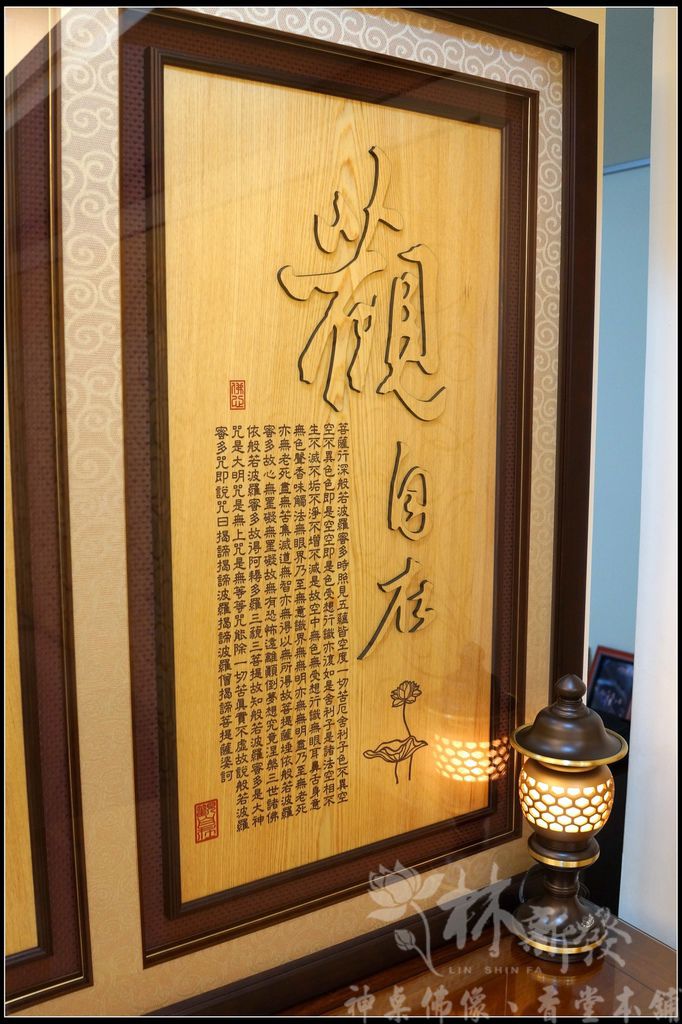 觀自在
菩薩行深般若波羅蜜多時照見五蘊皆空度一切苦厄舍利子色不異空
空不異色色即是空空即是色受想行識亦復如是舍利子是諸法空相不
生不滅不垢不淨不增不減是故空中無色無受想行識無眼耳鼻舌身意
無色聲香味觸法無眼界乃至無意識界無無明亦無無明盡乃至無老死
亦無老死盡無苦集滅道無智亦無得以無所得故菩提薩埵依般若波羅
蜜多故心無罣礙無罣礙故無有恐怖遠離顛倒夢想究竟涅槃三世諸佛
依般若波羅蜜多故得阿耨多羅三藐三菩提故知般若波羅蜜多是大神
咒是大明咒是無上咒是無等等咒能除一切苦真實不虛故說般若波羅
蜜多咒即說咒曰揭諦揭諦波羅揭諦波羅僧揭諦菩提薩婆訶
林新發
LIN SHIN FA
神桌佛像、香堂本舖